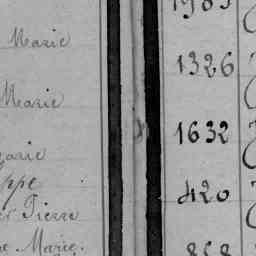 Marie
1326
Marie
1632
arie
ppe
420
Pierre
Marie.